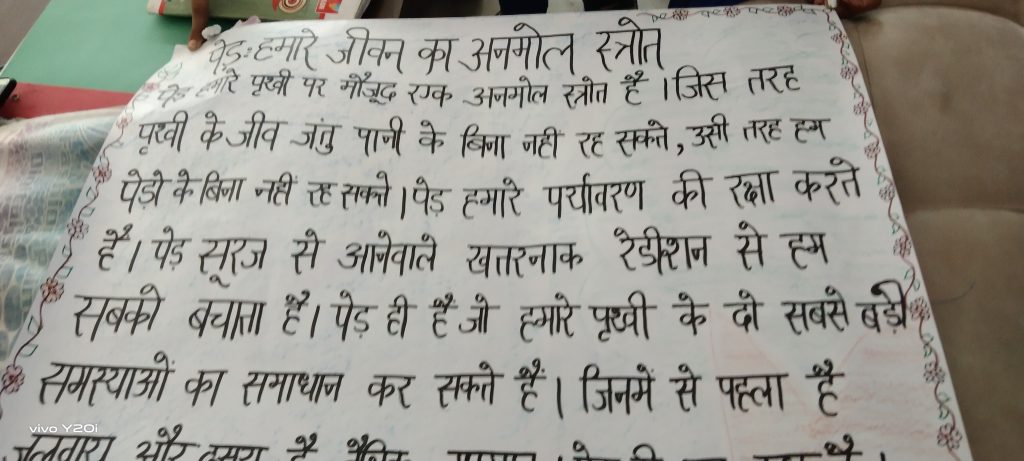 पेड़:हमारे जीवन का अनमोल स्त्रोत
पेड़ हमारे पृथ्वी पर मौजूद एक अनमोल स्त्रोत है । जिस तरह
पृथ्वी के जीव जंतु पानी के बिना नहीं रह सकते, उसी तरह हम
पेड़ो के बिना नहीं रह सकते । पेड़ हमारे पर्यावरण की रक्षा करते
हैं । पेड़ सूरज से आनेवाले खतरनाक रेडीशन से हम
सबको बचाता हैं । पेड़ ही है जो हमारे पृथ्वी के दो सबसे बड़ी
समस्याओं का समाधान कर सकते हैं । जिनमें से पहला है
और है
vivo Y20i